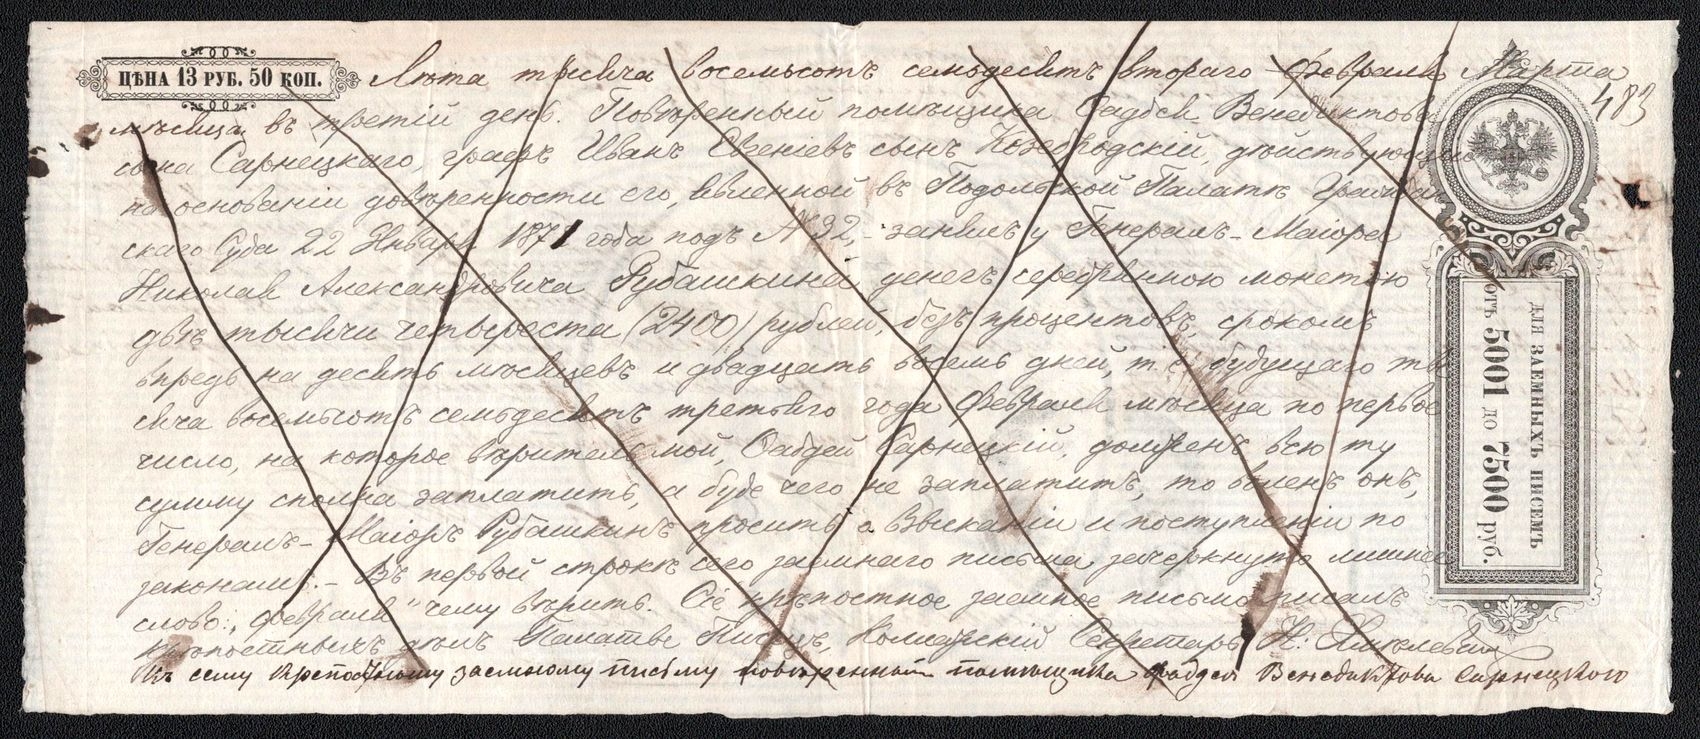 ЦѢНА 13 РУБ. 50 КОП.
Лѣта тысяча восемьсотъ семьдесятъ втораго Февраля Марта
483
мѣсяца въ третій день. Повѣренный помѣщика Фадѣя Венедиктова
сына Сарнецкаго, графъ Иванъ сынъ Козебродскій, дѣйствующій
на основаніи довѣренности его, явленной въ Подольской Палатѣ Граждан
скаго Суда 22 Января 1871 года подъ № 92, занялъ у Генералъ-Маіора
Николая Александровича Рубашкина денегъ серебрянною монетою
двѣ тысячи четыреста (2400) рублей, безъ процентовъ, срокомъ
впредь на десять мѣсяцевъ и двадцать восемь дней, т. е. будущаго ты
сяча восемьсотъ семьдесятъ третьяго года Февраля мѣсяца по первое
число, на которое вѣритель мой, Фадѣй Сарнецкій, долженъ всю ту
сумму сполна заплатить, а буде чего не заплатитъ, то воленъ онъ,
Генералъ-Маіоръ Рубашкинъ просить о взысканіи и поступленіи по
законамъ. - Въ первой строкѣ сего заемнаго письма зачеркнуто лишнее
слово: "Февраля" чему вѣрить. Сіе крѣпостное заемное письмо писалъ
крѣпостныхъ дѣлъ Палаты Писецъ, Коллежскій Секретарь Н:
Къ сему крепостному заемному письму повѣренный помѣщика Фадѣя Венедиктова Сарнецкого
ДЛЯ ЗАЕМНЫХЪ ПИСЕМЪ
отъ 5001 до 7500 руб.